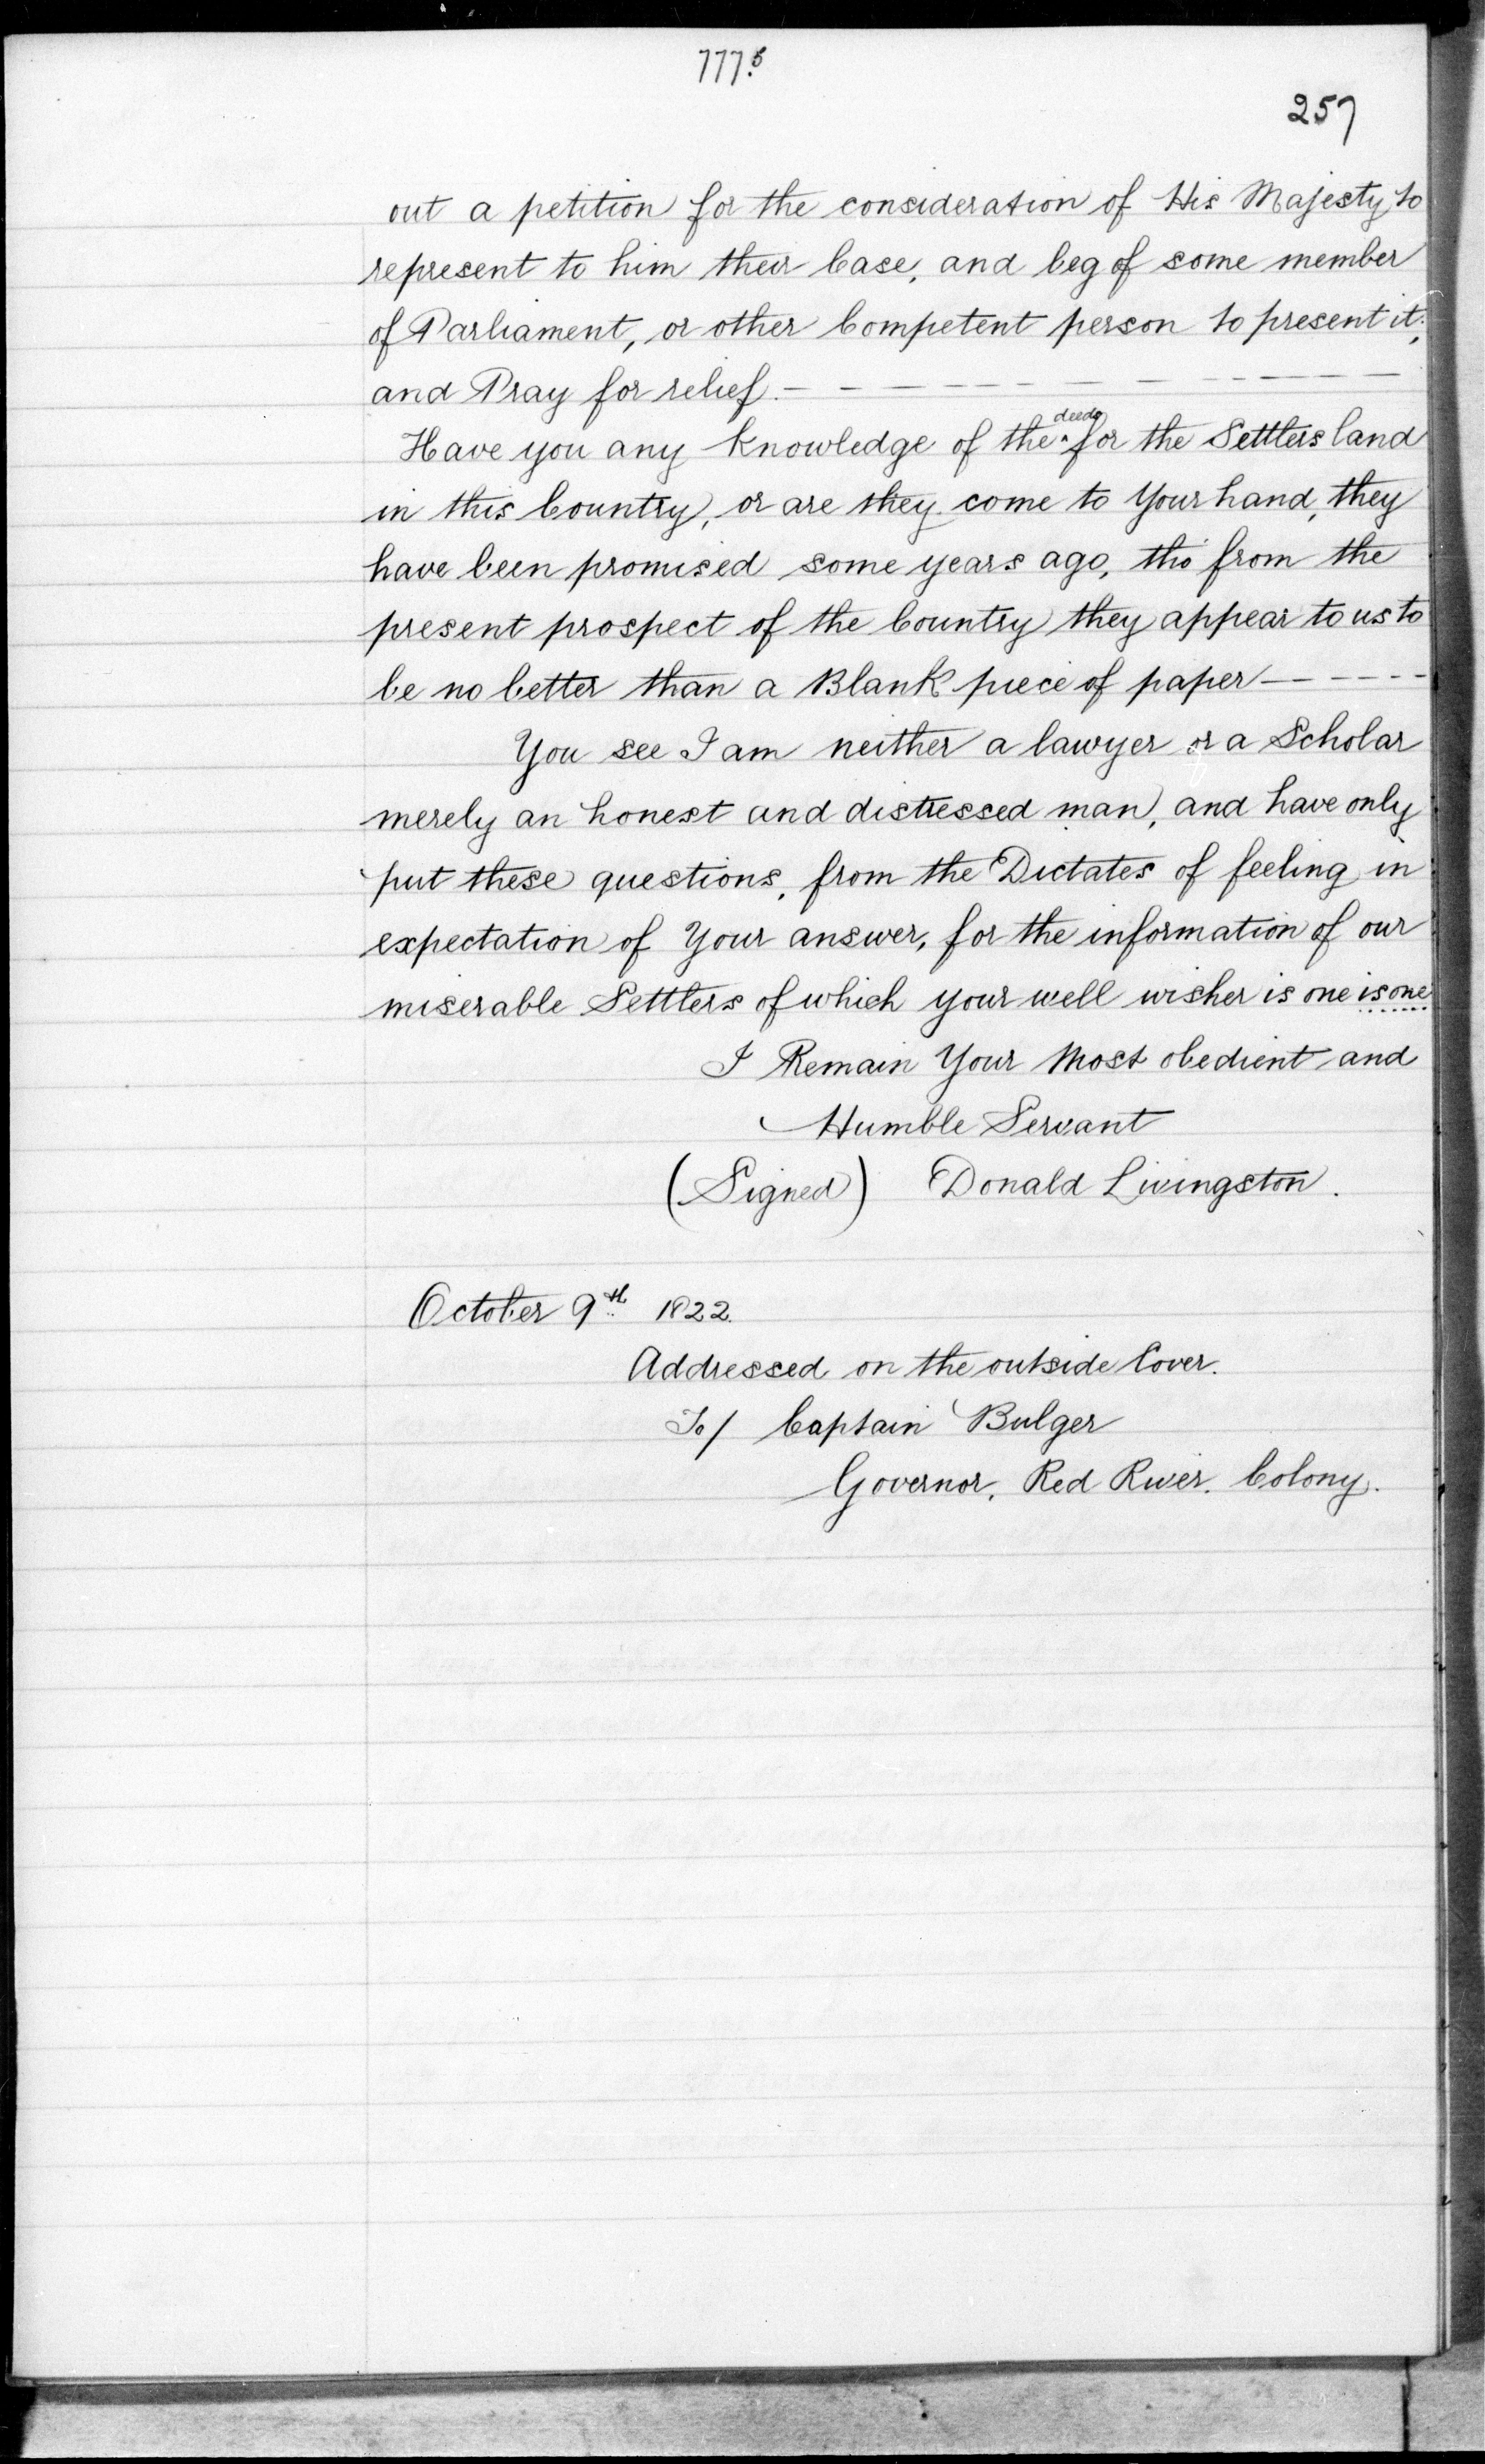 777.
257
out a petition for the consideration of His Majesty to
represent to him their Case, and beg of some member
of Parliament, or other Competent person to present it,
and Pray for relief. — — — — — — — — — — —
deeds
Have you any Knowledge of the ^ for the Settlers land
in this Country, or are they come to Your hand, they
have been promised some years ago, tho' from the
present prospect of the Country they appear to us to
be no better than a Blank piece of paper — — — — —
You see I am neither a lawyer or a Scholar
merely an honest and distressed man, and have only
put these questions, from the Dictates of feeling in
expectation of Your answer, for the information of our
miserable Settlers of which your well wisher is one is one
I Remain Your Most obedient and
Humble Servant
(Signed) Donald Livingston.
October 9th 1822.
Addressed on the outside Cover.
To/ Captain Bulger
Governor, Red River. Colony.